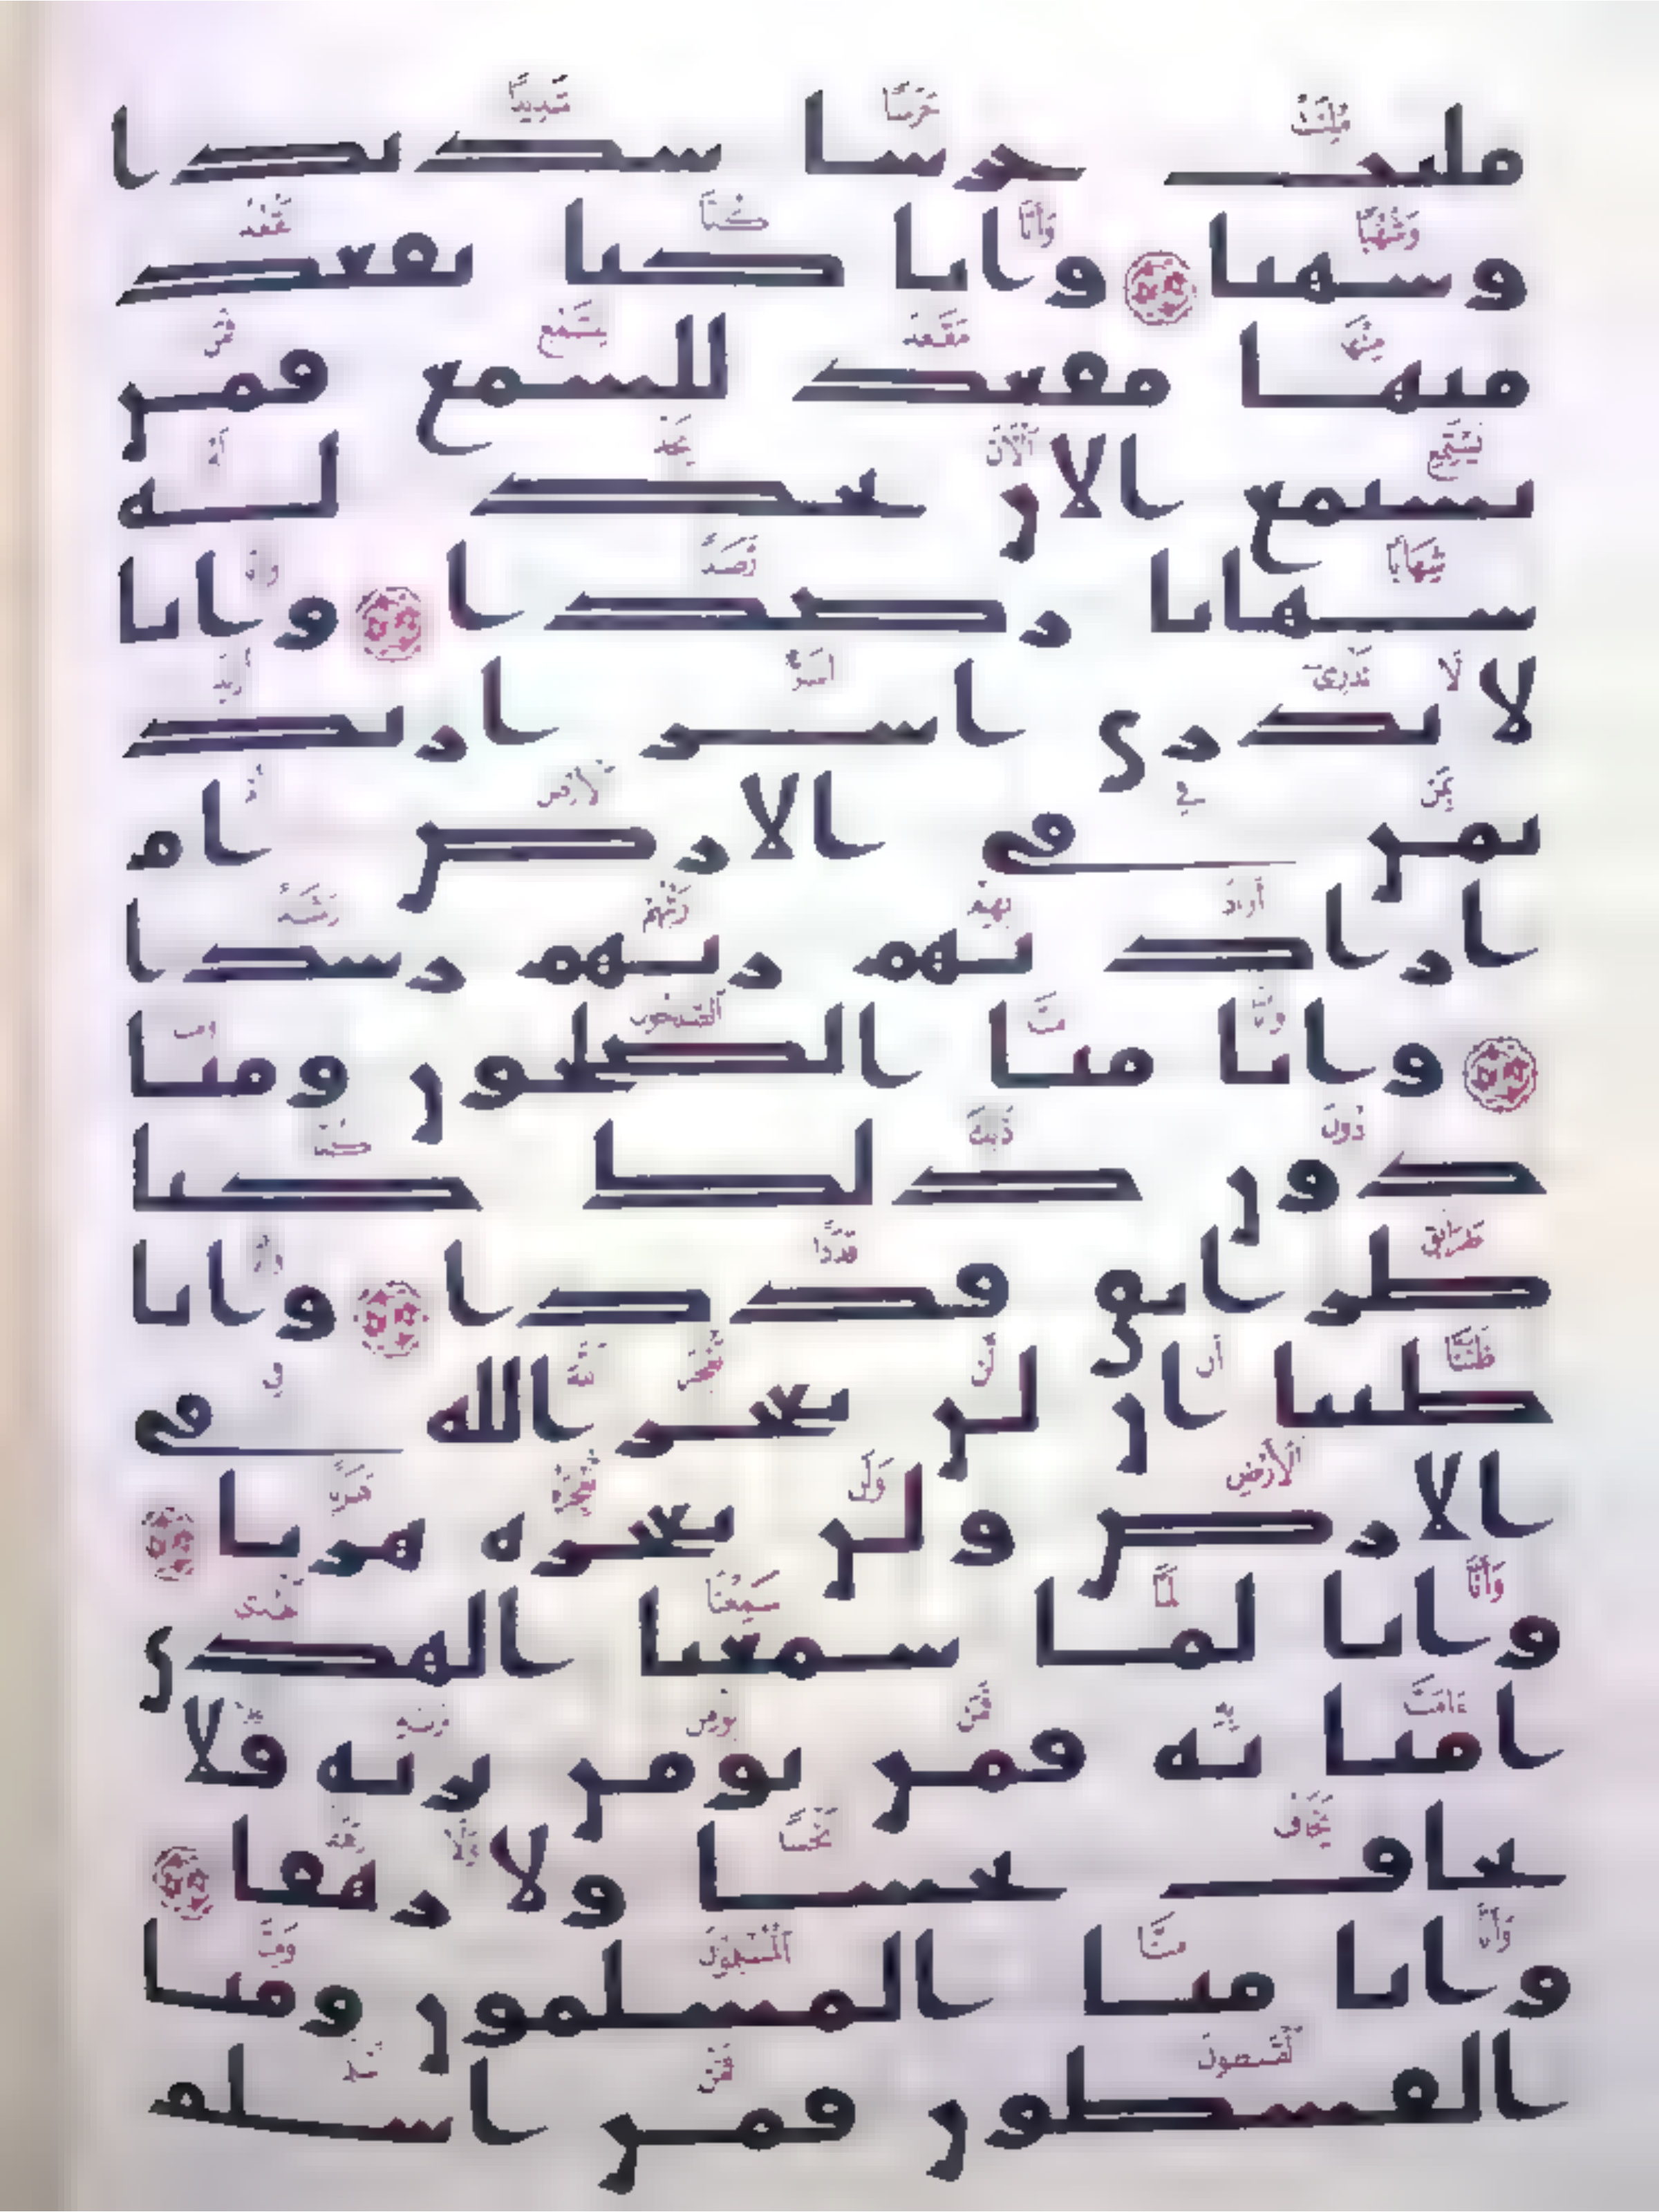 ملئت حرسا شديدا
وشهبا وانا كنا نقعد
منها مقعد للسمع فمن
يستمع الان يجد له
شهابا رصدا وانا
لا ندري اشر اريد
بمن في الارض ام
اراد بهم ربهم رشدا
وانا منا الصلحون ومنا
دون ذلك كنا
طرايق قددا وانا
ظننا ان لن نعجز الله في
الارض ولن نعجزه هربا
وانا لما سمعنا الهدى
امنا به فمن يومن بربه فلا
يخاف بخسا ولا رهقا
وانا منا المسلمون ومنا
القسطون فمن اسلم